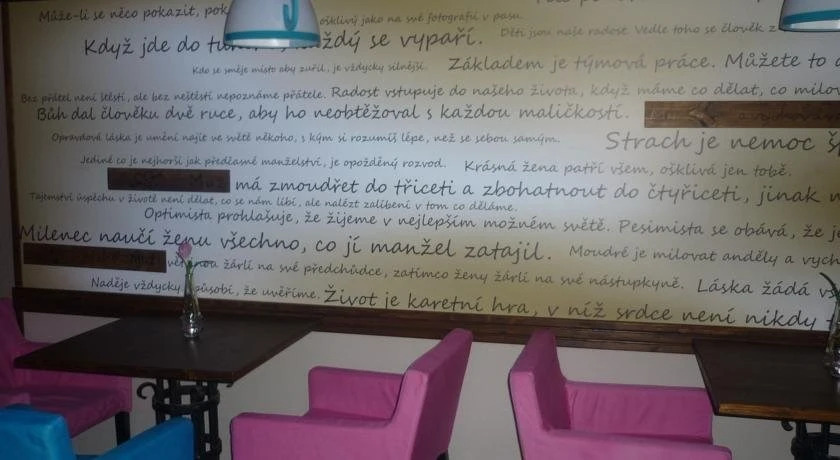 Může-li se něco pokazit,
ošklivý jako na své fotografii v pasu.
Když jde do každý se vypaří.
Děti jsou naše radost. Vedle toho se člověk
Kdo se směje místo aby zuřil, je vždycky silnější.
Základem je týmová práce. Můžete to
Bez přátel není štěstí, ale bez neštěstí nepoznáme přátele.
Radost vstupuje do našeho života, když máme co dělat, co
Bůh dal člověku dvě ruce, aby ho neobtěžoval s každou maličkostí.
Opravdová láska je umění najít ve světě někoho, s kým si rozumíš lépe, než se sebou samým.
Strach je nemoc
Jediné co je nejhorší jak předčasné manželství, je opožděný rozvod.
Krásná žena patří všem, ošklivá jen tobě.
má zmoudřet do třiceti a zbohatnout do čtyřiceti, jinak
Tajemství úspěchu v životě není dělat, co se nám líbí, ale nalézt zalíbení v tom co děláme.
Optimista prohlašuje, že žijeme v nejlepším možném světě. Pesimista se obává, že
Milenec naučí ženu všechno, co jí manžel zatajil.
Moudré je milovat anděly a
žárlí na své předchůdce, zatímco ženy žárlí na své nástupkyně.
Láska žádá
Naděje vždycky působí, že uvěříme.
Život je karetní hra, v níž srdce není nikdy